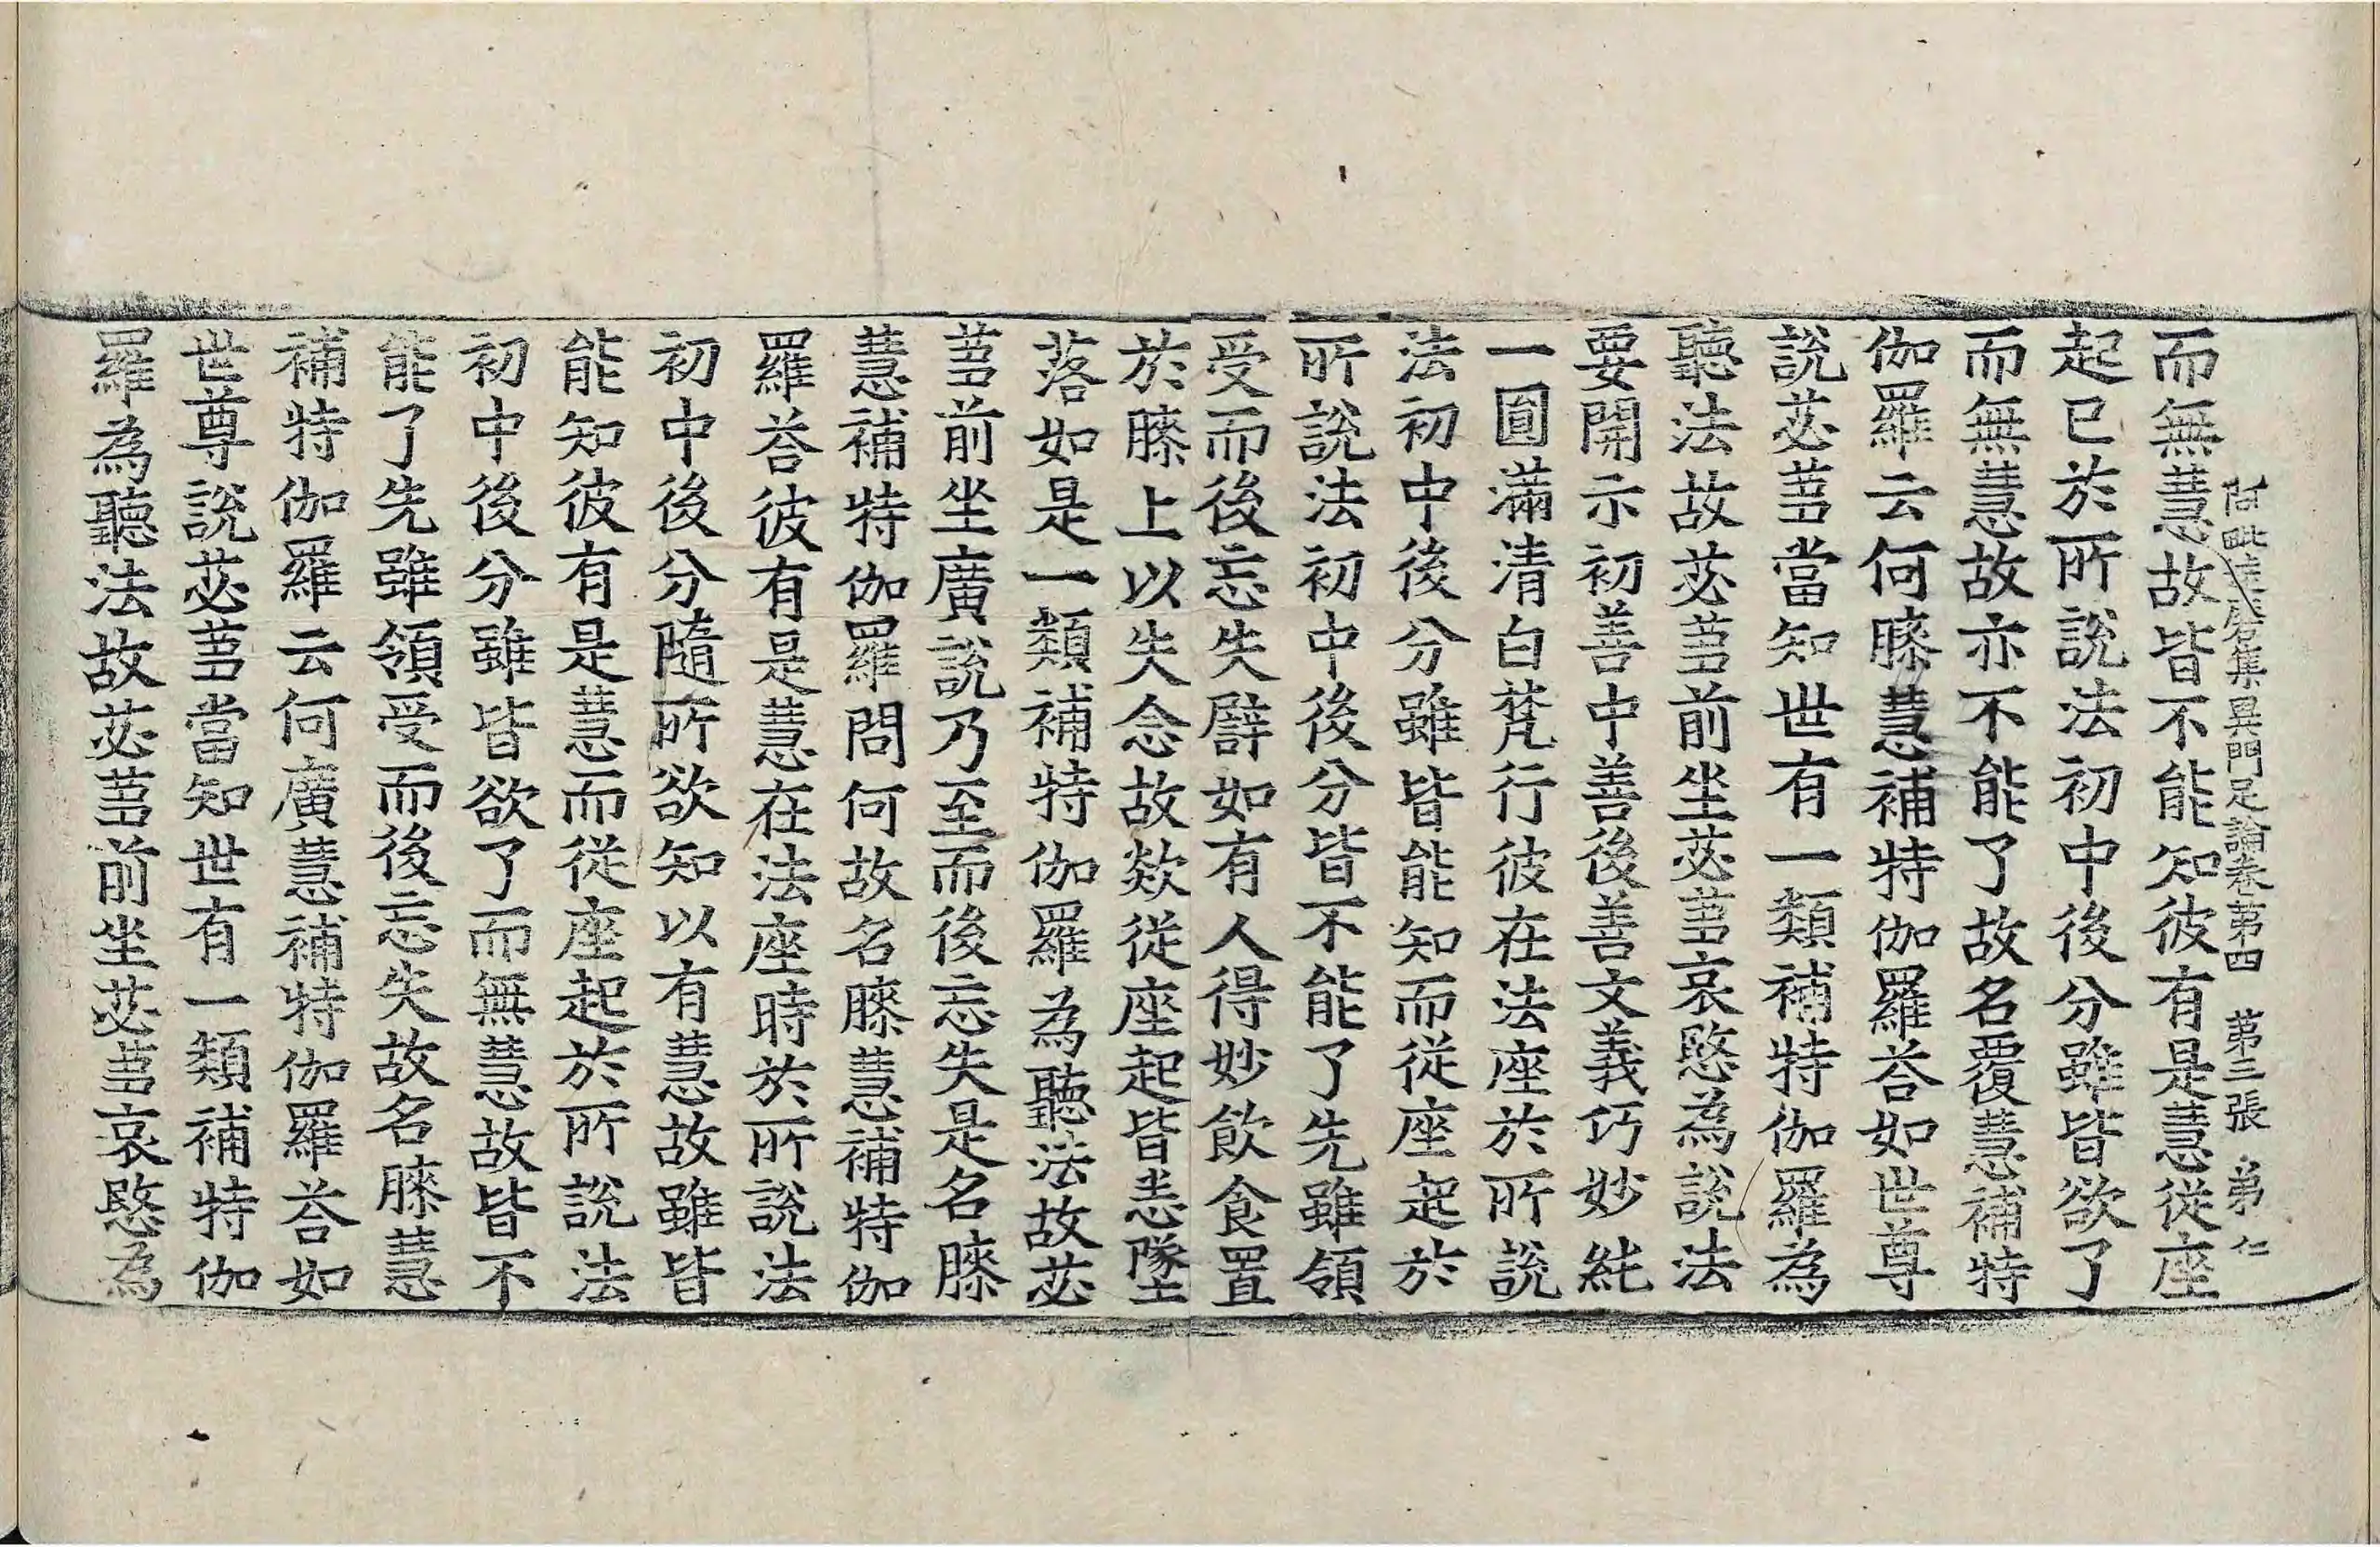 阿毗達磨集異門足論卷第四 第三張 弟 仁
而無慧故皆不能知彼有是慧從座
起已於所說法初中後分雖皆欲了
而無慧故亦不能了故名覆慧補特
伽羅云何膝慧補特伽羅荅如世尊
說苾蒭當知世有一類補特伽羅為
聽法故苾蒭前坐苾蒭哀愍為說法
要開示初善中善後善文義巧妙純
一圓滿清白梵行彼在法座於所說
法初中後分雖皆能知而從座起於
所說法初中後分皆不能了先雖領
受而後忘失譬如有人得妙飲食置
於膝上以失念故欻從座起皆悉墜
落如是一類補特伽羅為聽法故苾
蒭前坐廣說乃至而後忘失是名膝
慧補特伽羅問何故名膝慧補特伽
羅荅彼有是慧在法座時於所說法
初中後分隨所欲知以有慧故雖皆
能知彼有是慧而從座起於所說法
初中後分雖皆欲了而無慧故皆不
能了先雖領受而後忘失故名膝慧
補特伽羅云何廣慧補特伽羅荅如
世尊說苾蒭當知世有一類補特伽
羅為聽法故苾蒭前坐苾蒭哀愍為